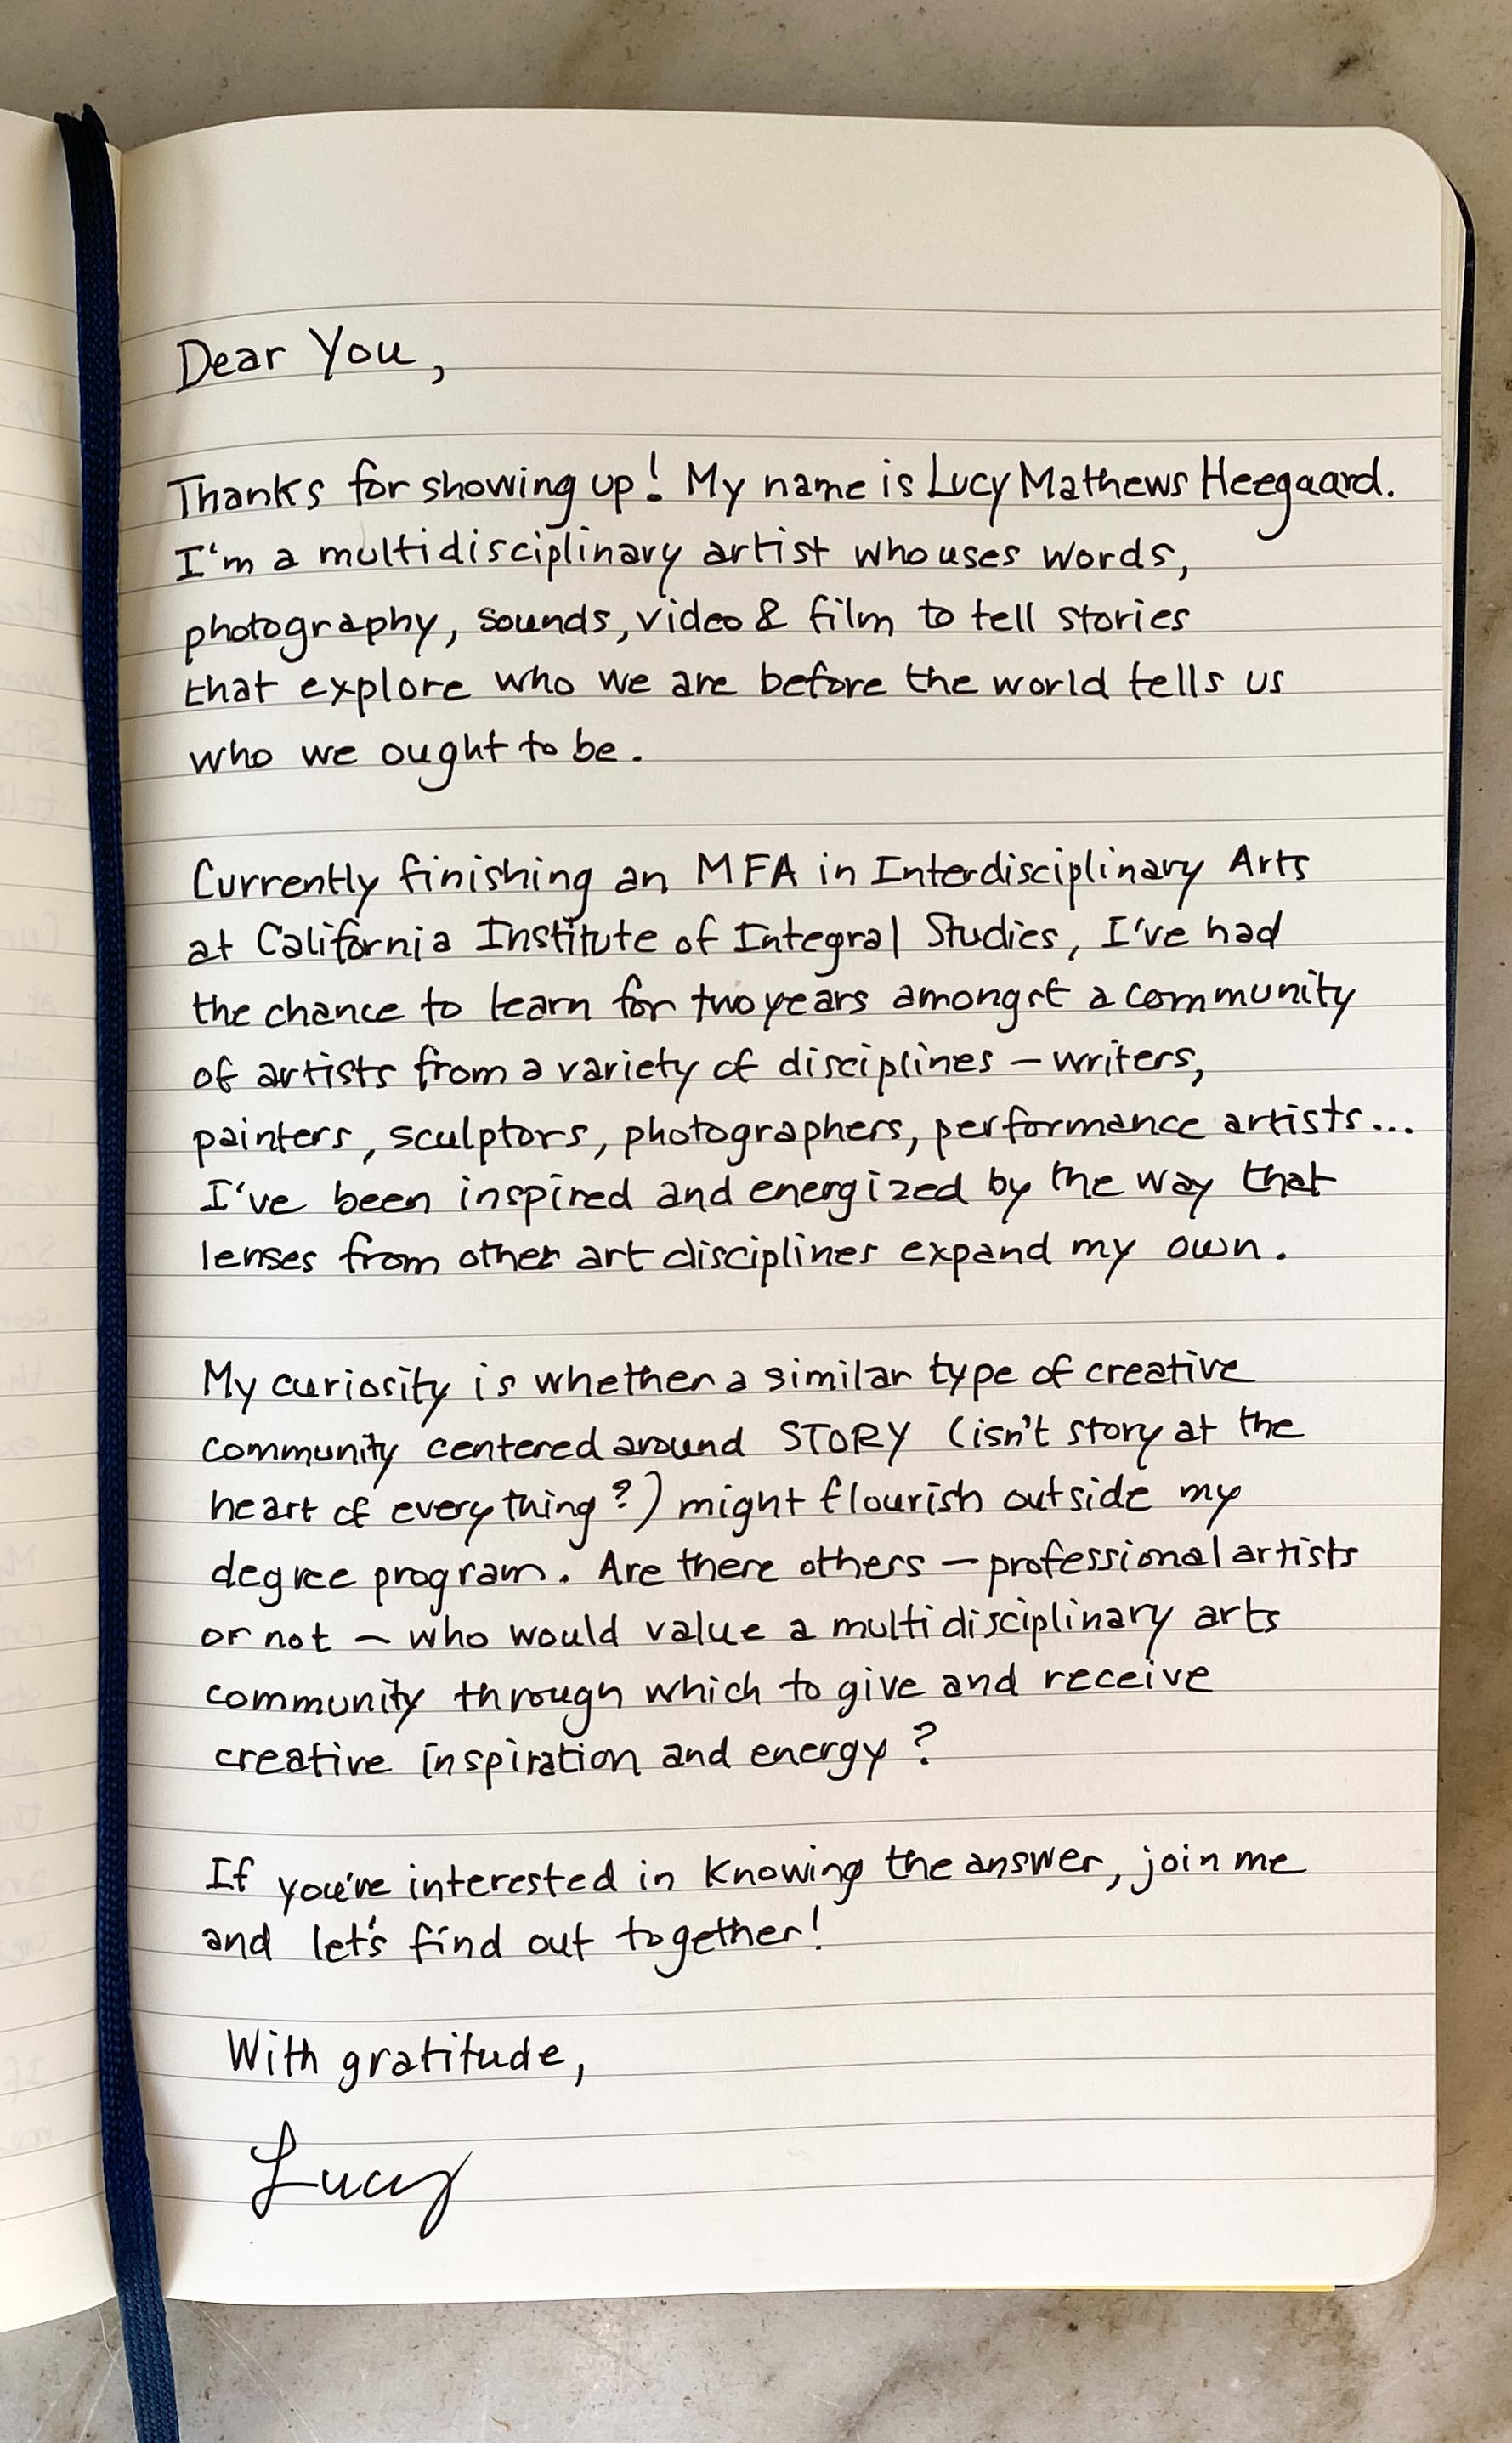 Dear You,
Thanks for showing up! My name is Lucy Mathews Heegaard.
I'm a multidisciplinary artist who uses words,
photography, sounds, video & film to tell stories
that explore who we are before the world tells us
who we ought to be.
Currently finishing an MFA in Interdisciplinary Arts
at California Institute of Integral Studies, I've had
the chance to learn for two years amongst a community
of artists from a variety of disciplines – writers,
painters, sculptors, photographers, performance artists...
I've been inspired and energized by the way that
lenses from other art disciplines expand my own.
My curiosity is whether a similar type of creative
community centered around STORY (isn't story at the
heart of everything?) might flourish outside my
degree program. Are there others – professional artists
or not – who would value a multidisciplinary arts
community through which to give and receive
creative inspiration and energy?
If you're interested in knowing the answer, join me
and let's find out together!
With gratitude,
Lucy